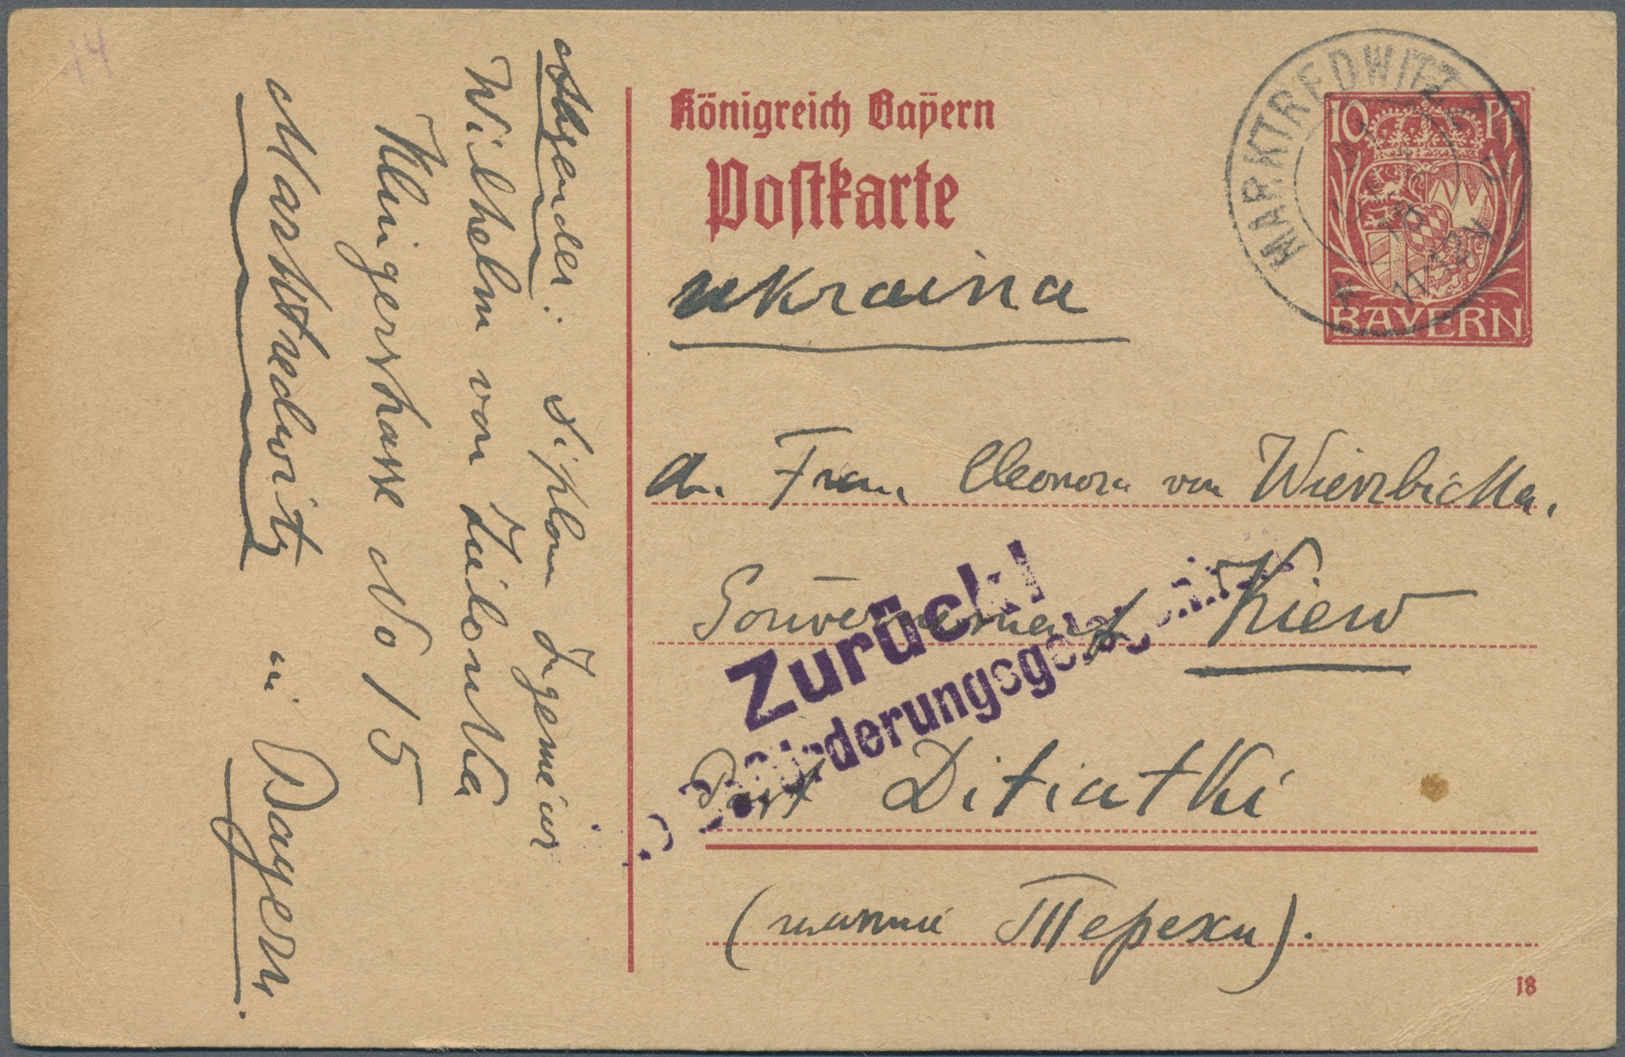 Königreich Bayern
Postkarte
10 Pf
BAYERN
MARKTREDWITZ
ukraina
Frau Eleonora von Wierzbicka,
Gouvernement Kiew
Post Ditiatki
(имѣніе Терехи).
18
Zurück!
Beförderungsgelegenheit
Absender: Diplom Igenieur
Wilhelm von Zielonka
Klingerstrasse No 15
Marktredwitz in Bayern.
14